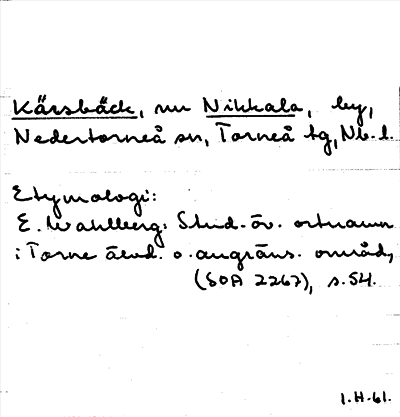 Kärsbäck, nu Nikkala, by,
Nedertorneå sn, Torneå tg, Nb. l.
Etymologi:
E. Wahlberg: Stud. öv. ortnamn
i Torne älvd. o. angräns. områd,
(SOA 2267), s. 54.
1.H.61.